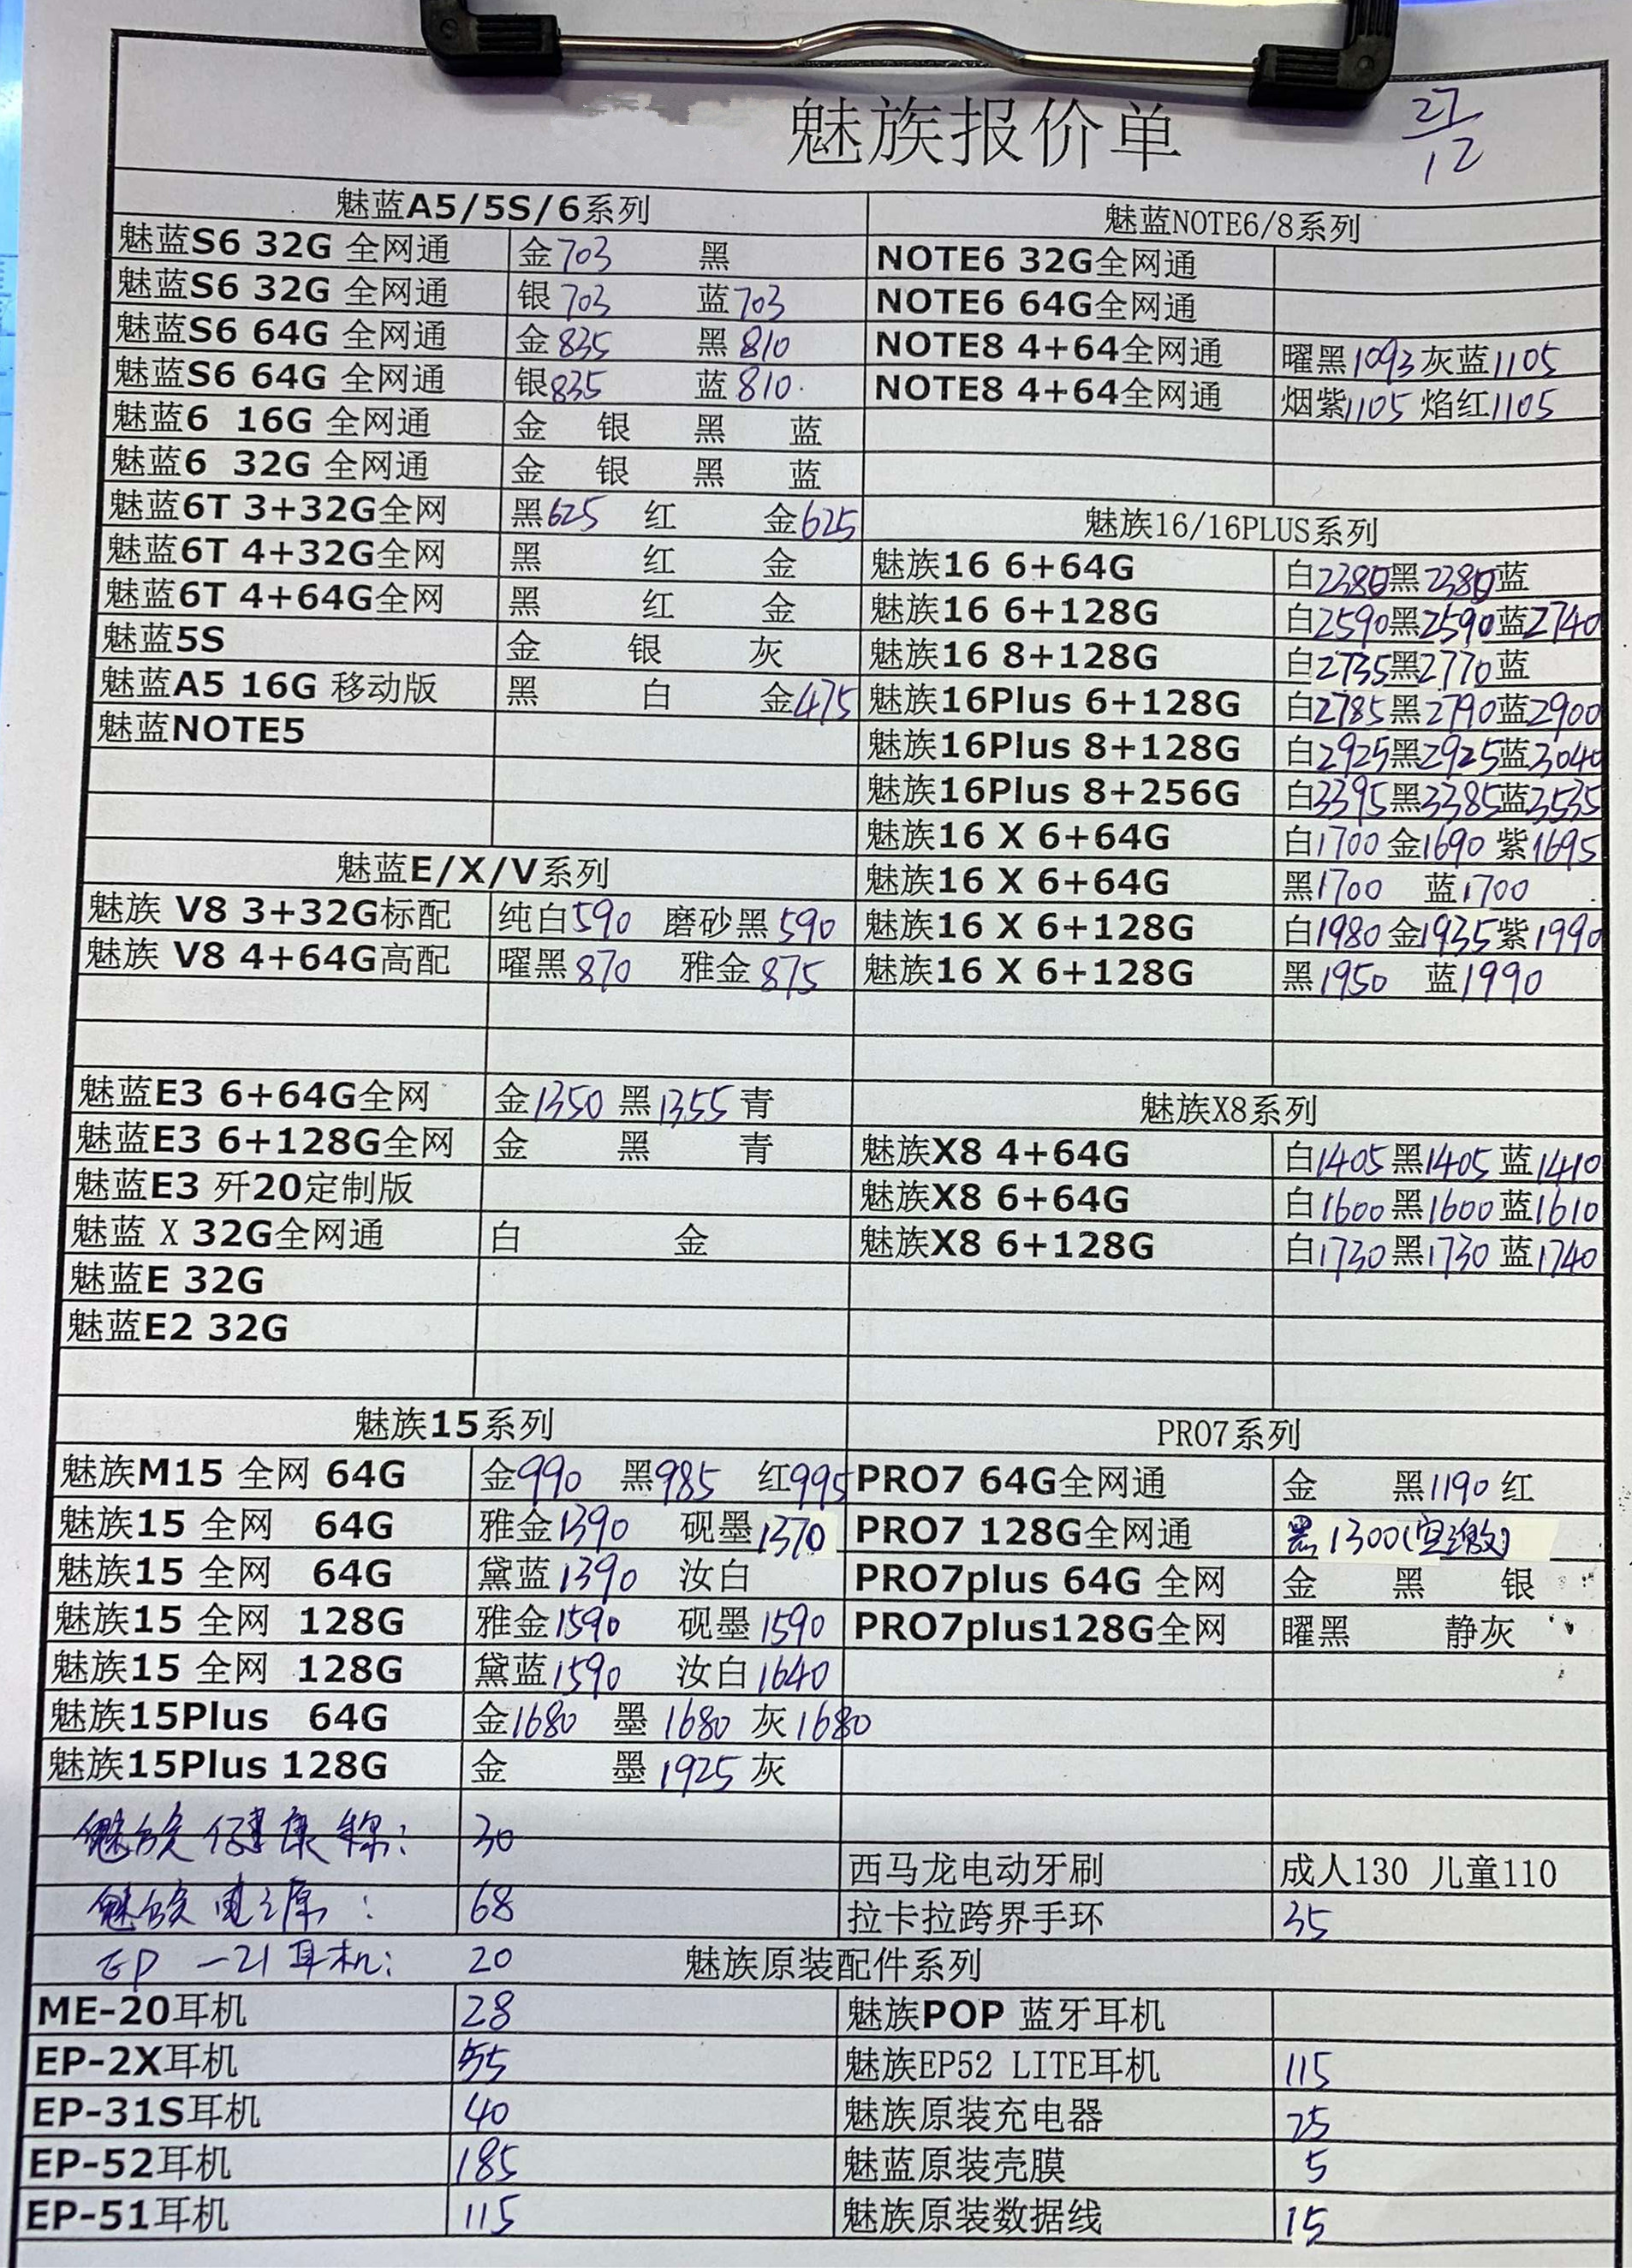 魅族报价单
27/12
魅蓝A5/5S/6系列
魅蓝S6 32G 全网通 金703 黑
魅蓝S6 32G 全网通 银703 蓝703
魅蓝S6 64G 全网通 金835 黑810
魅蓝S6 64G 全网通 银835 蓝810
魅蓝6 16G 全网通 金 银 黑 蓝
魅蓝6 32G 全网通 金 银 黑 蓝
魅蓝6T 3+32G全网 黑625 红 金625
魅蓝6T 4+32G全网 黑 红 金
魅蓝6T 4+64G全网 黑 红 金
魅蓝5S 金 银 灰
魅蓝A5 16G 移动版 黑 白 金475
魅蓝NOTE5
魅蓝NOTE6/8系列
NOTE6 32G全网通
NOTE6 64G全网通
NOTE8 4+64全网通 曜黑1093 灰蓝1105
NOTE8 4+64全网通 烟紫1105 焰红1105
魅族16/16PLUS系列
魅族16 6+64G 白2380黑2380蓝
魅族16 6+128G 白2590黑2590蓝2740
魅族16 8+128G 白2735黑2770蓝
魅族16Plus 6+128G 白2785黑2790蓝2900
魅族16Plus 8+128G 白2925黑2925蓝3040
魅族16Plus 8+256G 白3395黑3385蓝3535
魅族16 X 6+64G 白1700 金1690 紫1695
魅族16 X 6+64G 黑1700 蓝1700
魅族16 X 6+128G 白1980 金1935紫1990
魅族16 X 6+128G 黑1950 蓝1990
魅蓝E/X/V系列
魅族 V8 3+32G标配 纯白590 磨砂黑590
魅族 V8 4+64G高配 曜黑870 雅金875
魅蓝E3 6+64G全网 金1350 黑1355 青
魅蓝E3 6+128G全网 金 黑 青
魅蓝E3 歼20定制版
魅蓝 X 32G全网通 白 金
魅蓝E 32G
魅蓝E2 32G
魅族X8系列
魅族X8 4+64G 白1405黑1405 蓝1410
魅族X8 6+64G 白1600黑1600蓝1610
魅族X8 6+128G 白1730黑1730 蓝1740
魅族15系列
魅族M15 全网 64G 金990 黑985 红995
魅族15 全网 64G 雅金1390 砚墨1370
魅族15 全网 64G 黛蓝1390 汝白
魅族15 全网 128G 雅金1590 砚墨1590
魅族15 全网 128G 黛蓝1590 汝白1640
魅族15Plus 64G 金1680 墨1680 灰1680
魅族15Plus 128G 金 墨1925 灰
PRO7系列
PRO7 64G全网通 金 黑1190 红
PRO7 128G全网通 黑1300(空激)
PRO7plus 64G 全网 金 黑 银
PRO7plus128G全网 曜黑 静灰
魅族健康秤: 30
魅族电源: 68
EP-21耳机: 20
西马龙电动牙刷 成人130 儿童110
拉卡拉跨界手环 35
魅族原装配件系列
ME-20耳机 28
EP-2X耳机 55
EP-31S耳机 40
EP-52耳机 185
EP-51耳机 115
魅族POP 蓝牙耳机
魅族EP52 LITE耳机 115
魅族原装充电器 25
魅蓝原装壳膜 5
魅族原装数据线 15